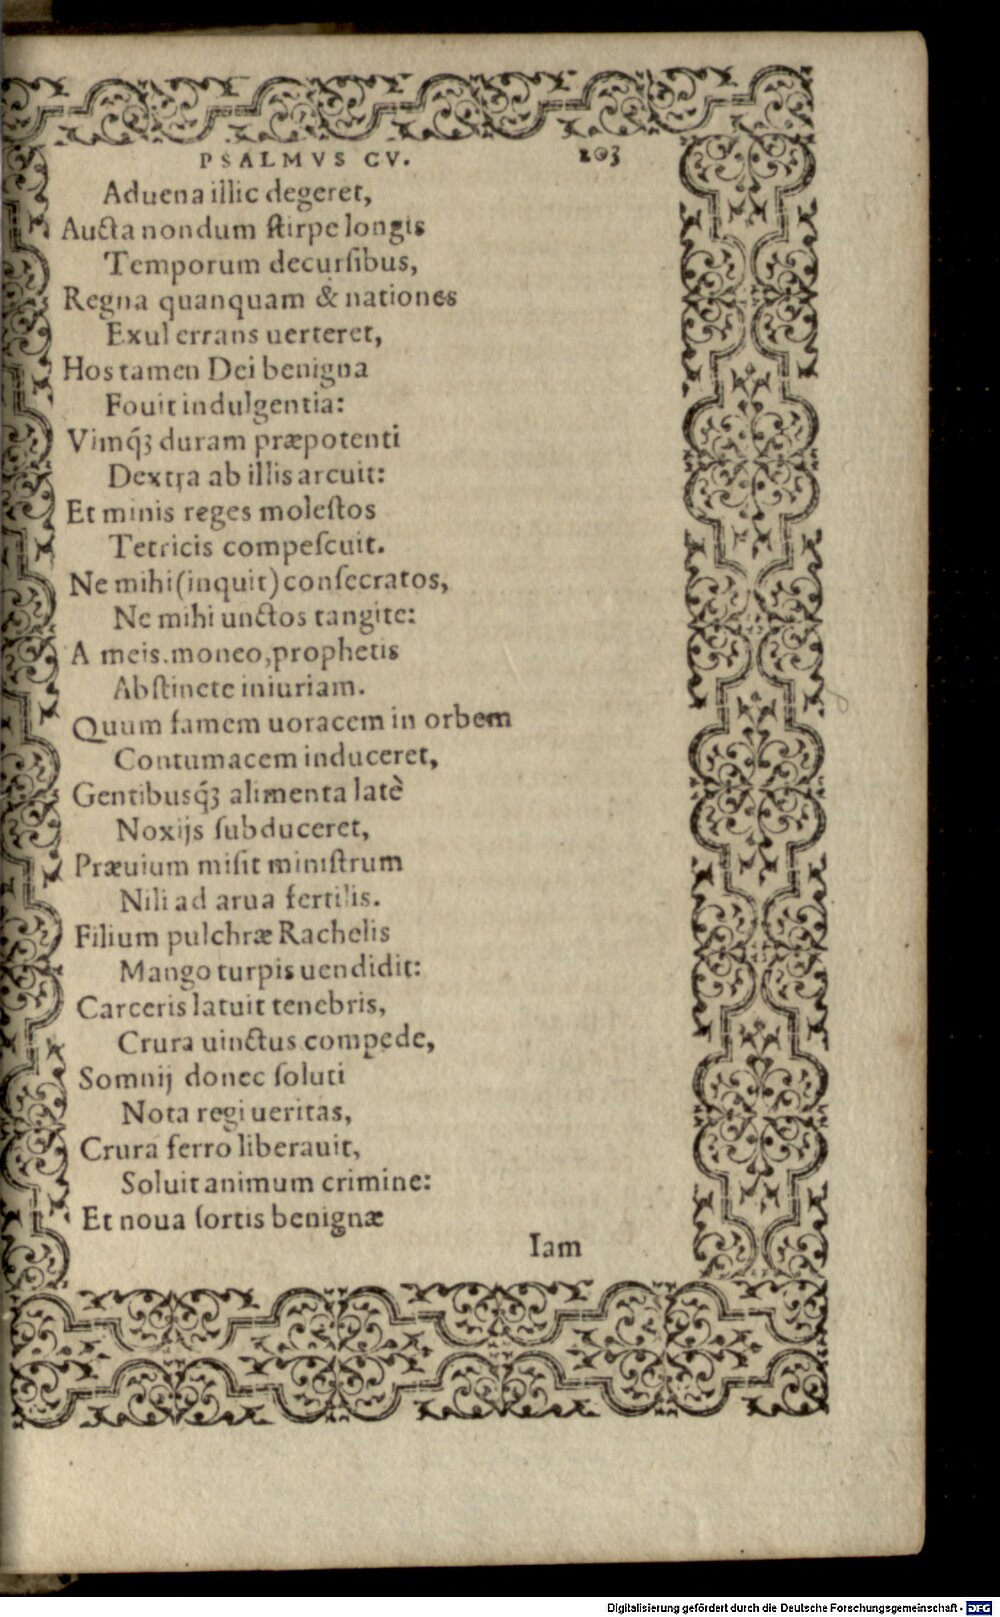 PSALMVS CV. 203
Aduena illic degeret,
Aucta nondum ſtirpe longis
Temporum decurſibus,
Regna quanquam & nationes
Exul errans uerteret,
Hos tamen Dei benigna
Fouit indulgentia:
Vimq́ꝫ duram præpotenti
Dextra ab illis arcuit:
Et minis reges moleſtos
Tetricis compeſcuit.
Ne mihi (inquit) conſecratos,
Ne mihi unctos tangite:
A meis.moneo,prophetis
Abſtinete iniuriam.
Quum famem uoracem in orbem
Contumacem induceret,
Gentibusq́ꝫ alimenta latè
Noxijs ſubduceret,
Præuium miſit miniſtrum
Nili ad arua fertilis.
Filium pulchræ Rachelis
Mango turpis uendidit:
Carceris latuit tenebris,
Crura uinctus compede,
Somnij donec ſoluti
Nota regi ueritas,
Crura ferro liberauit,
Soluit animum crimine:
Et noua ſortis benignæ
Iam
Digitalisierung gefördert durch die Deutsche Forschungsgemeinschaft - DFG